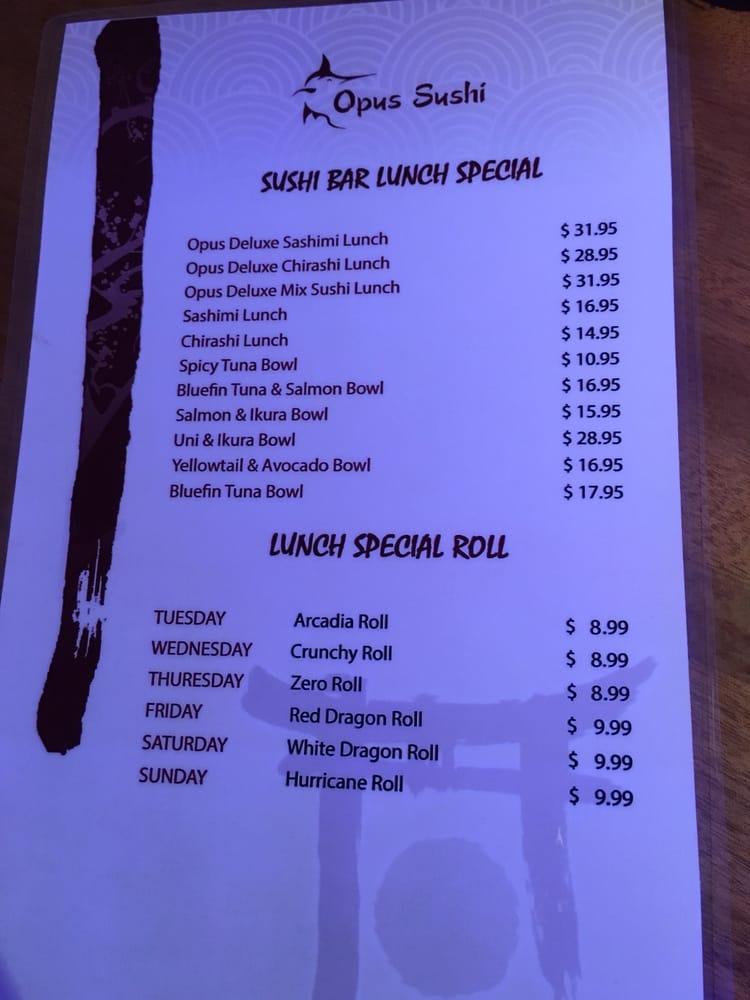 Opus Sushi
SUSHI BAR LUNCH SPECIAL
Opus Deluxe Sashimi Lunch $ 31.95
Opus Deluxe Chirashi Lunch $ 28.95
Opus Deluxe Mix Sushi Lunch $ 31.95
Sashimi Lunch $ 16.95
Chirashi Lunch $ 14.95
Spicy Tuna Bowl $ 10.95
Bluefin Tuna & Salmon Bowl $ 16.95
Salmon & Ikura Bowl $ 15.95
Uni & Ikura Bowl $ 28.95
Yellowtail & Avocado Bowl $ 16.95
Bluefin Tuna Bowl $ 17.95
LUNCH SPECIAL ROLL
TUESDAY Arcadia Roll $ 8.99
WEDNESDAY Crunchy Roll $ 8.99
THURESDAY Zero Roll $ 8.99
FRIDAY Red Dragon Roll $ 9.99
SATURDAY White Dragon Roll $ 9.99
SUNDAY Hurricane Roll $ 9.99